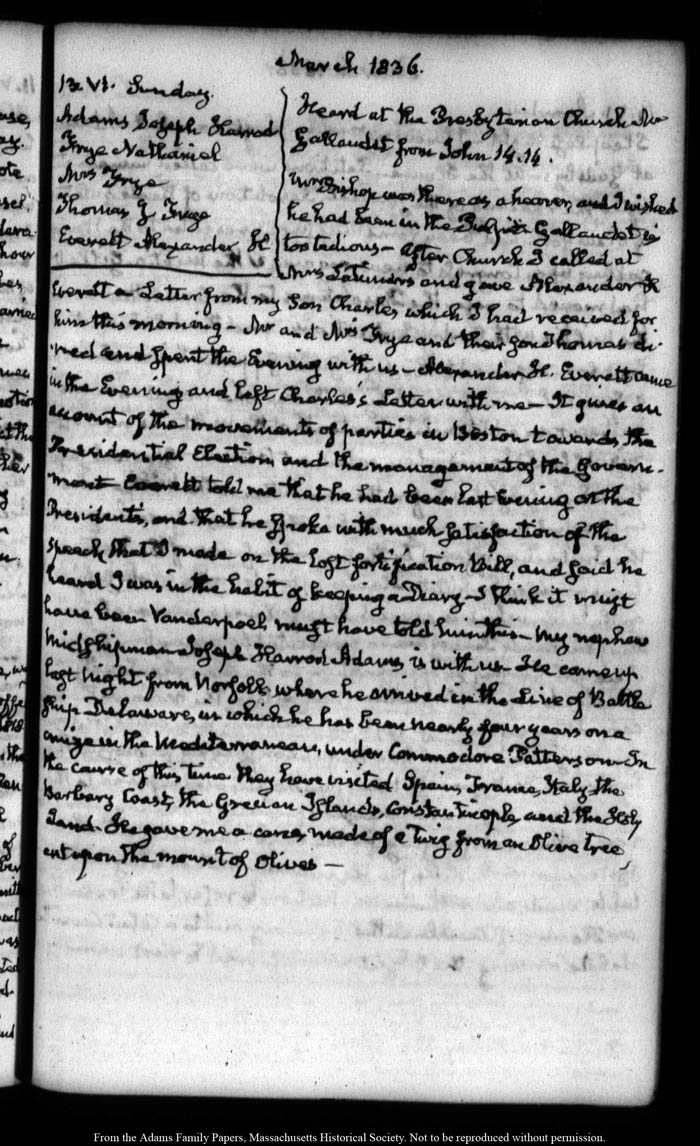 March 1836.
13. VI. Sunday.
Adams Joseph Harrod
Frye Nathaniel
Mrs Frye
Thomas J. Frye
Everett Alexander H
Heard at the Presbyterian Church Mr
Gallaudet from John 14.14.
Mr Bishop was there as a hearer, and I wished
he had been in the Pulpit. Gallaudet is
too tedious — After Church I called at
Mrs Latimers and gave Alexander H
Everett a Letter from my Son Charles which I had received for
him this morning — Mr and Mrs Frye and their son Thomas di-
ned and spent the Evening with us — Alexander H. Everett came
in the Evening and left Charles's Letter with me — It gives an
account of the movements of parties in Boston towards the
Presidential Election, and the management of the Govern-
ment Everett told me that he had been last Evening at the
Presidents, and that he spoke with much satisfaction of the
speech that I made on the lost fortification Bill, and said he
heard I was in the habit of keeping a Diary — I think it must
have been Vanderpoel, must have told him this — My nephew
Midshipman Joseph Harrod Adams, is with us. He came up
last Night from Norfolk, where he arrived in the Line of Battle
ship Delaware, in which he has been nearly four years on a
cruize in the Mediterranean, under Commodore Patterson. In
the course of this time they have visited Spain, France, Italy, the
Barbary Coast, the Grecian Islands, Constantinople, and the Holy
Land. He gave me a cane, made of a twig from an Olive tree,
cut upon the mount of Olives —
From the Adams Family Papers, Massachusetts Historical Society. Not to be reproduced without permission.